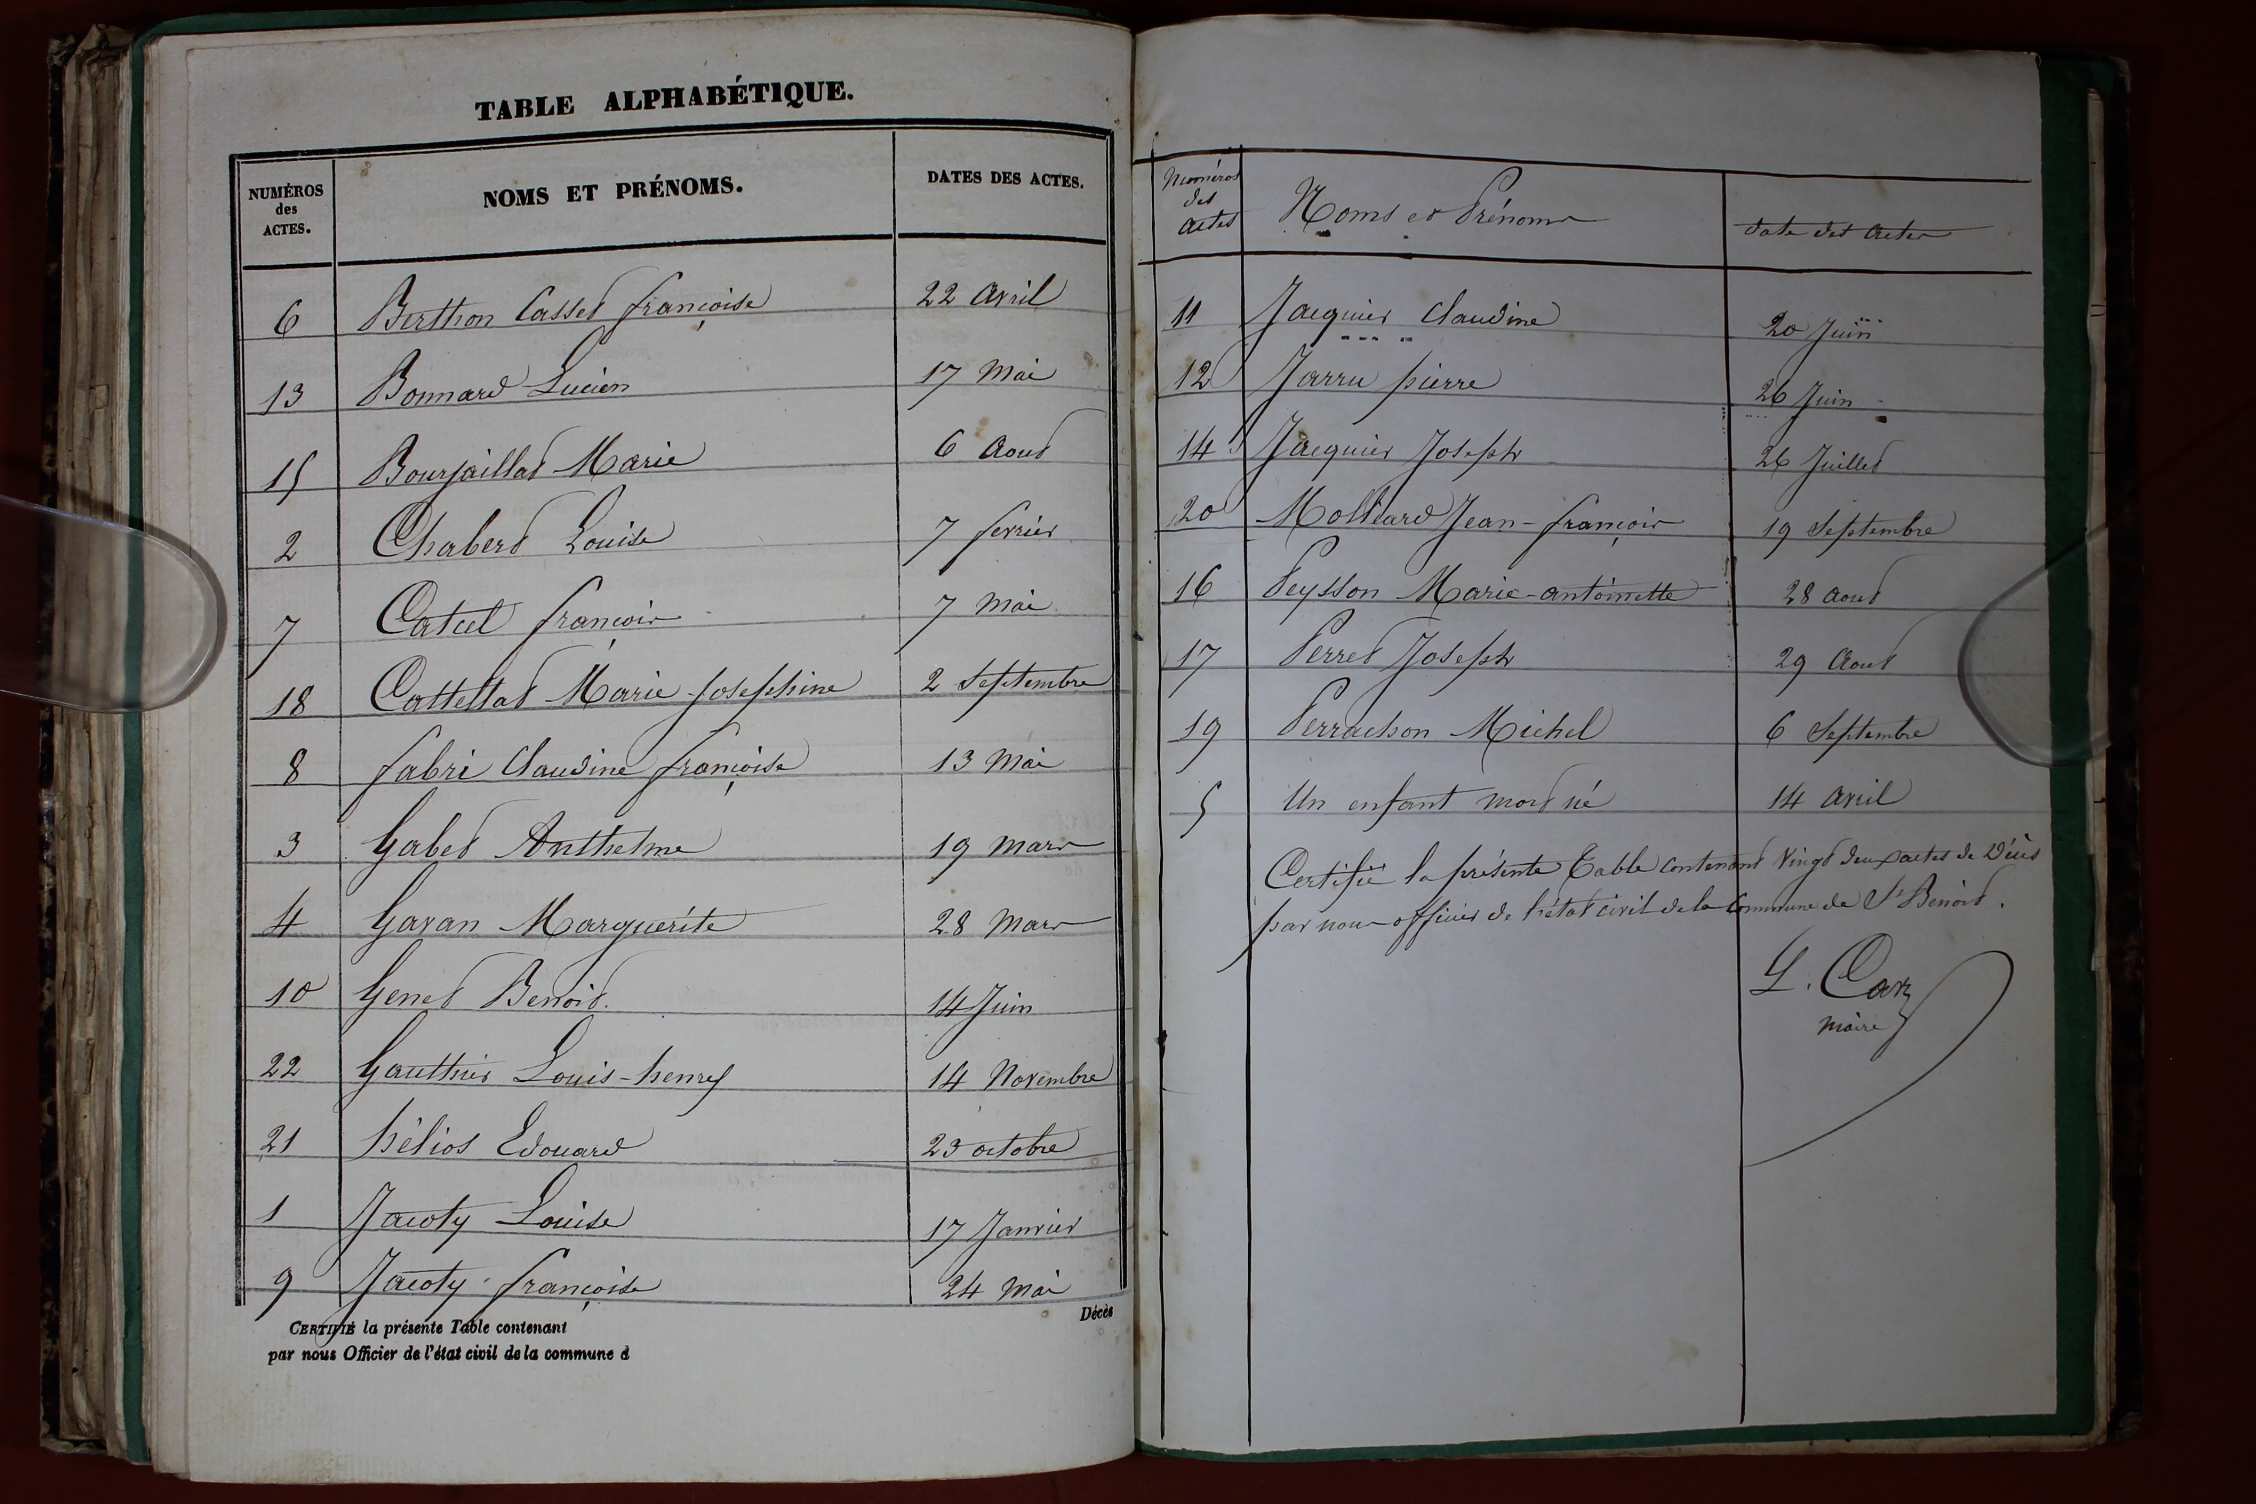 TABLE ALPHABÉTIQUE.
NUMÉROS des ACTES. NOMS ET PRÉNOMS. DATES DES ACTES.
6 Berthon Casset françoise 22 Avril
13 Bonnard Lucien 17 Mai
15 Bourjaillat Marie 6 Aout
2 Chabert Louise 7 fevrier
7 Catcel françois 7 Mai
18 Cattellat Marie-josephine 2 Septembre
8 fabri Claudine françoise 13 Mai
3 Gabet Anthelme 19 Mars
4 Gavan Marguérite 28 Mars
10 Genet Benoit. 14 Juin
22 Gauthier Louis-henry 14 Novembre
21 hélios Edouard 23 octobre
1 Jacoty Louise 17 Janvier
9 Jacoty françoise 24 Mai
Décès
CERTIFIÉ la présente Table contenant
par nous Officier de l'état civil de la commune d
Numéros des actes Noms et Prénoms date des actes
11 Jacquier Claudine 20 Juin
12 Jarru pierre 26 Juin
14 Jacquier Joseph 26 Juillet
20 Molliard Jean-françois 19 Septembre
16 Peysson Marie-antoinette 28 aout
17 Perret Joseph 29 Aout
19 Perrachon Michel 6 Septembre
5 Un enfant mort né 14 Avril
Certifié la présente Table contenant vingt deux actes de Décès
par nous officier de l'état civil de la Commune de St Benoit.
L. Caz
maire